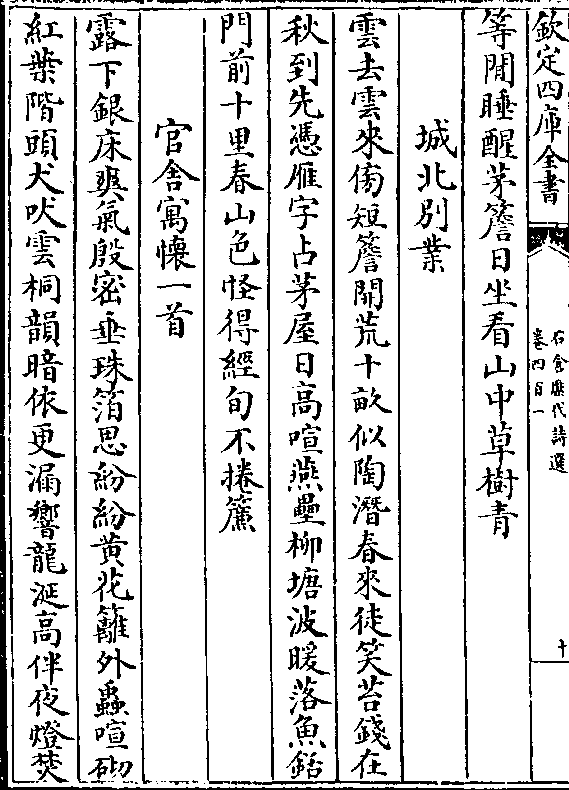 欽定四庫全書
石倉歷代詩選
卷四百一
十
等閒睡醒茅簷日坐看山中草樹青
城北别業
雲去雲來傍短簷開荒十畝似陶潛春來徒笑苔錢在
秋到先憑雁字占茅屋日高喧燕壘柳塘波暖落魚鉛
門前十里春山色怪得經旬不捲簾
官舍寓懷一首
露下銀床爽氣殷密垂珠箔思紛紛黄花籬外蟲喧砌
紅葉階頭犬吠雲桐韻暗依更漏響龍涎高伴夜燈焚